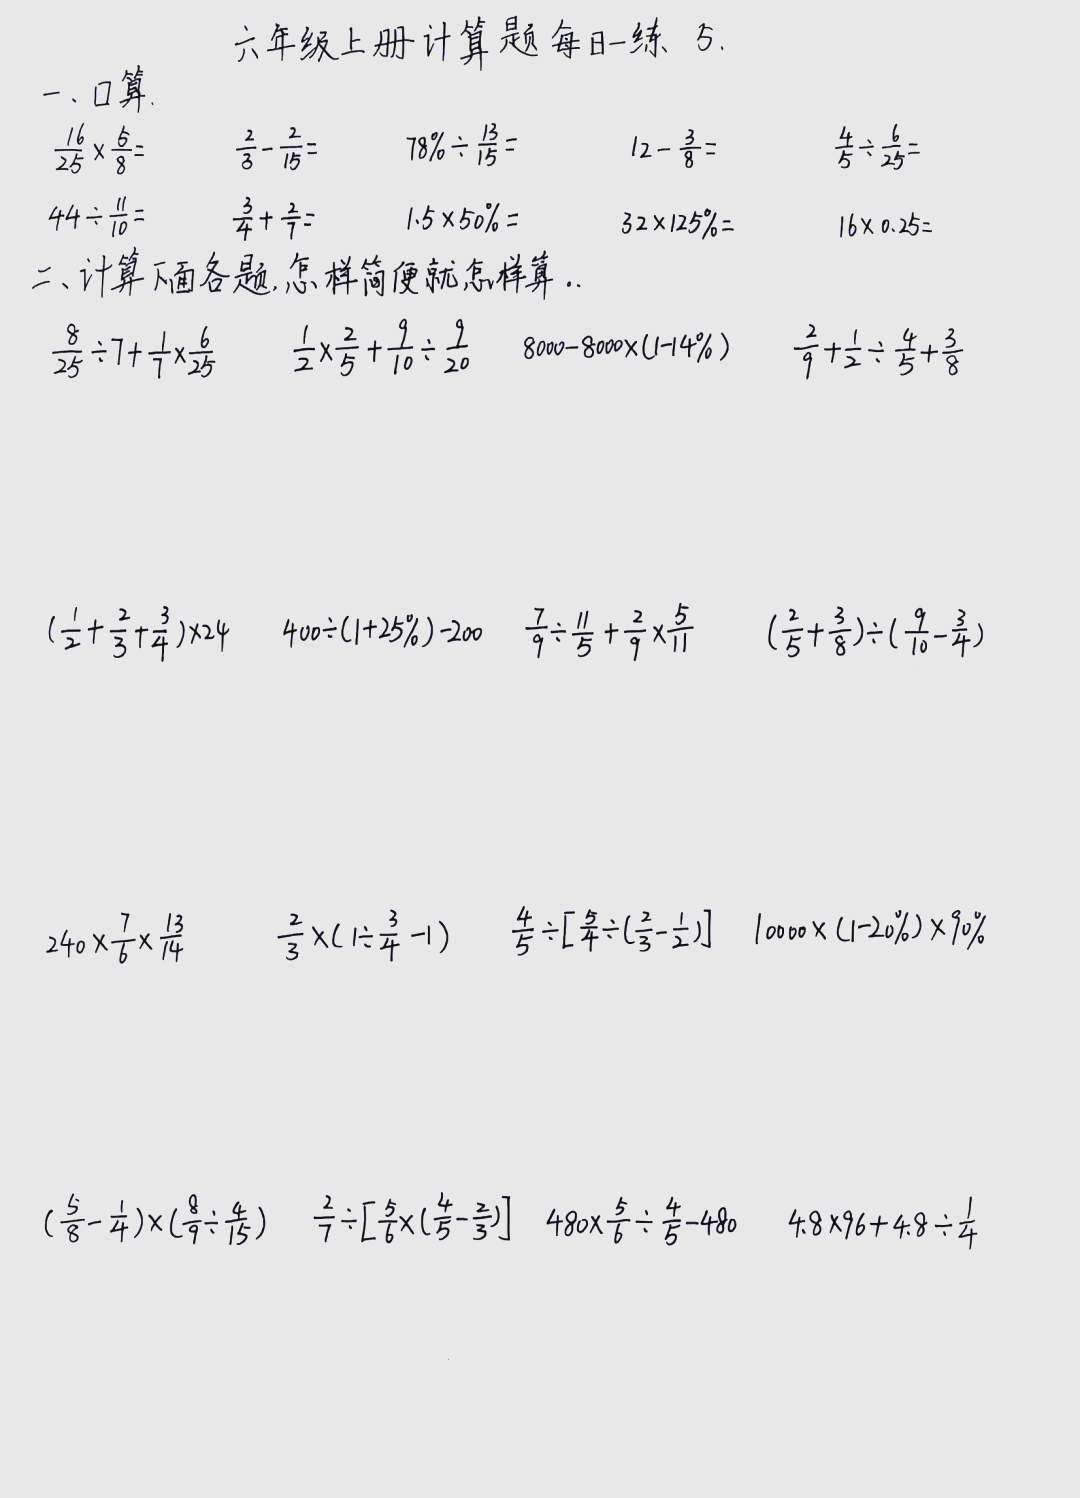 六年级上册计算题每日一练 5.
一、口算.
16/25 × 5/8 = 2/3 - 2/15 = 78% ÷ 13/15 = 12 - 3/8 = 4/5 ÷ 6/25 =
44 ÷ 11/10 = 3/4 + 2/7 = 1.5 × 50% = 32 × 125% = 16 × 0.25 =
二、计算下面各题,怎样简便就怎样算..
8/25 ÷ 7 + 1/7 × 6/25 1/2 × 2/5 + 9/10 ÷ 9/20 8000 - 8000 × (1-14%) 2/9 + 1/2 ÷ 4/5 + 3/8
(1/2 + 2/3 + 3/4) × 24 400 ÷ (1+25%) - 200 7/9 ÷ 11/5 + 2/9 × 5/11 (2/5 + 3/8) ÷ (9/10 - 3/4)
240 × 7/6 × 13/14 2/3 × (1 ÷ 3/4 - 1) 4/5 ÷ [5/4 ÷ (2/3 - 1/2)] 10000 × (1-20%) × 90%
(5/8 - 1/4) × (8/9 ÷ 4/15) 2/7 ÷ [5/6 × (4/5 - 2/3)] 480 × 5/6 ÷ 4/5 - 480 4.8 × 96 + 4.8 ÷ 1/4